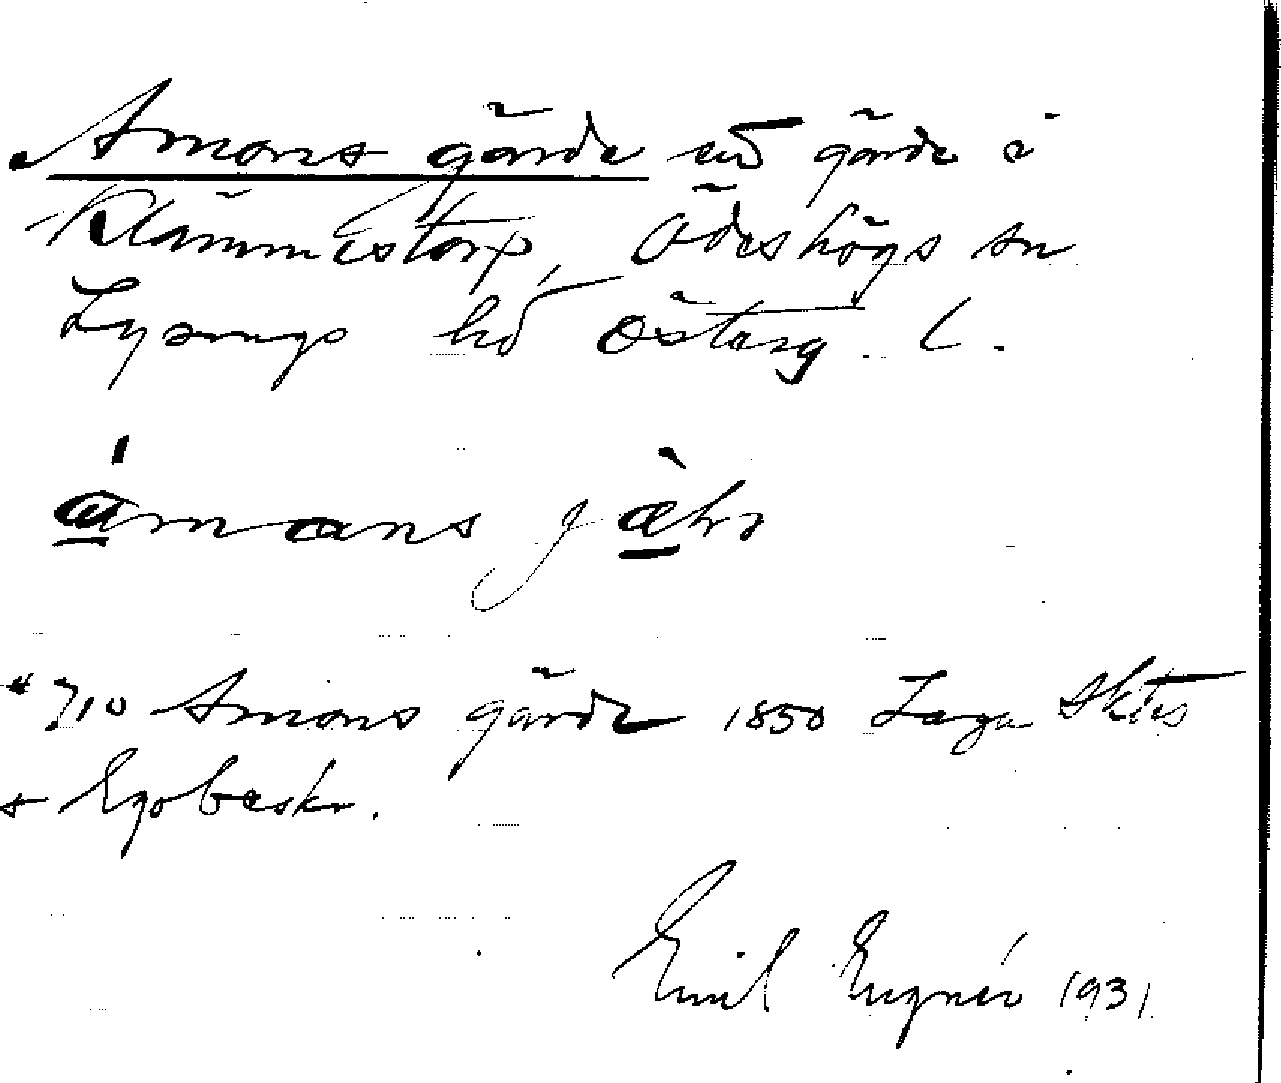 Amons gärde ett gärde i
Klämmestorp, Ödeshögs sn
Lysings hd Österg. L.
ámans jæ̀ҺꝚ
710 Amons gärde 1850 Laga Sktes
Egobeskr.
Emil Engnér 1931